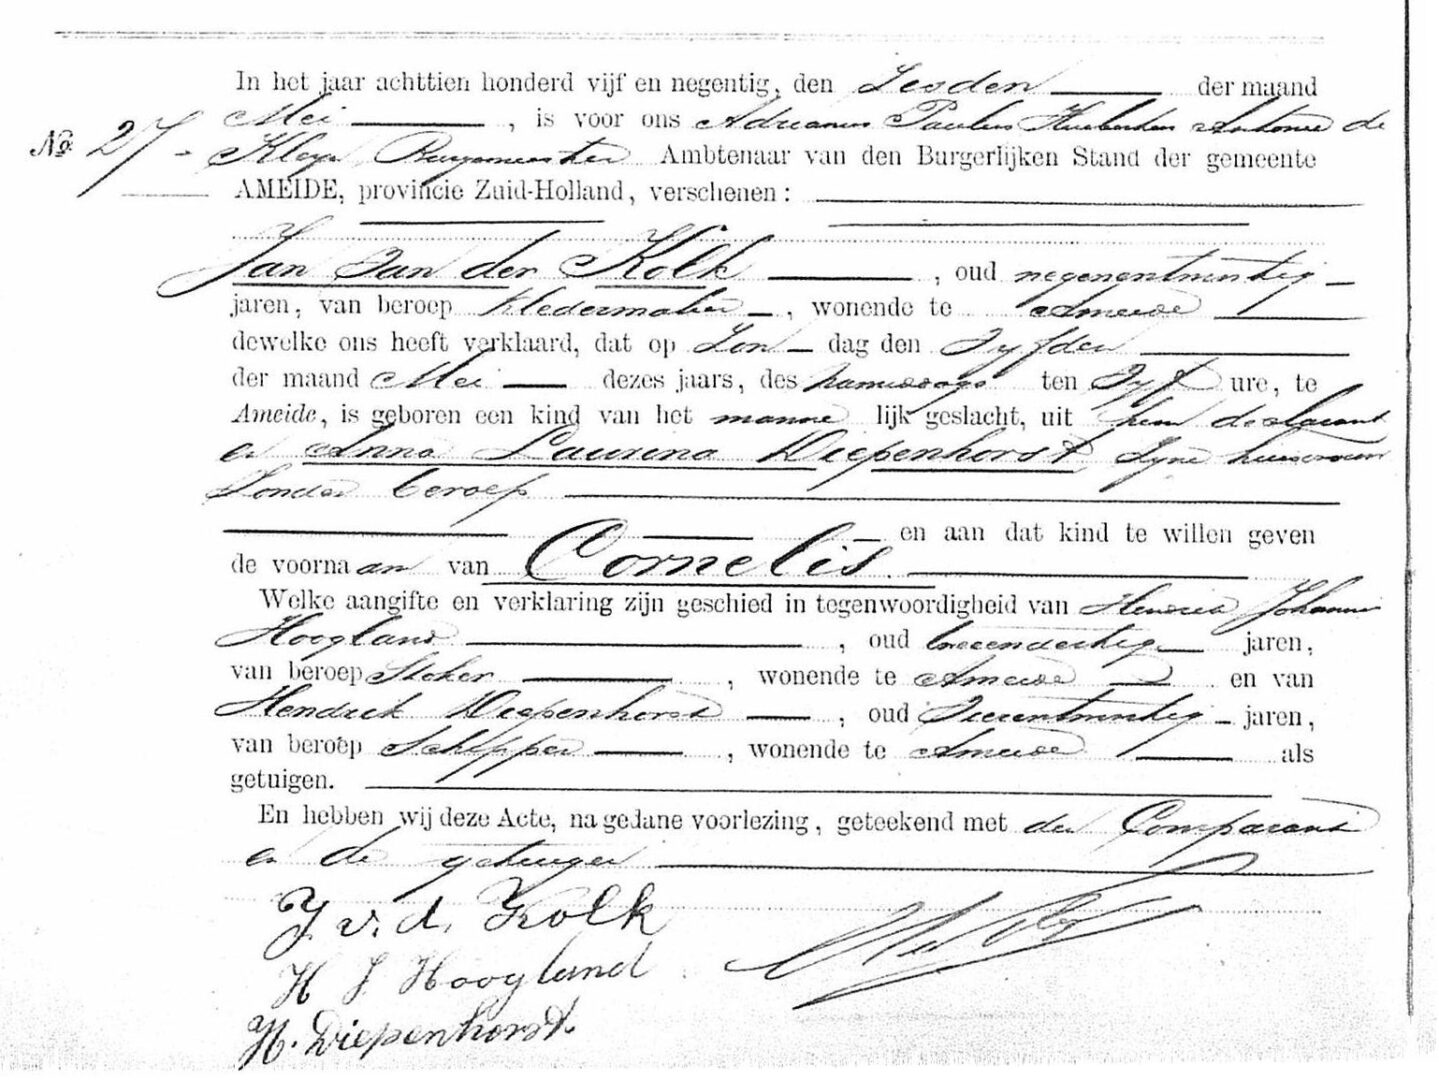 In het jaar achttien honderd vijf en negentig, den Zesden der maand
Mei, is voor ons Adrianus Paulus Hubertus Antonie de
No. 27 - Kleyn, Burgemeester Ambtenaar van den Burgerlijken Stand der gemeente
AMEIDE, provincie Zuid-Holland, verschenen:
Jan van der Kolk, oud negenentwintig
jaren, van beroep kledermaker, wonende te Ameide
dewelke ons heeft verklaard, dat op Zon-dag den Vyfden
der maand Mei dezes jaars, des namiddags ten Vyf ure, te
Ameide, is geboren een kind van het mannelijk geslacht, uit hem declarant
en Anna Laurina Diepenhorst zyne huisvrouw
Zonder beroep
en aan dat kind te willen geven
de voornaam van Cornelis.
Welke aangifte en verklaring zijn geschied in tegenwoordigheid van Johannes
Hoogland, oud tweeendertig jaren,
van beroep Stoker, wonende te Ameide en van
Hendrik Diepenhorst, oud Vierentwintig jaren,
van beroep Schipper, wonende te Ameide als
getuigen.
En hebben wij deze Acte, na gedane voorlezing, geteekend met den Comparant
en de getuigen
J. v. d. Kolk
H J Hoogland
H. Diepenhorst.